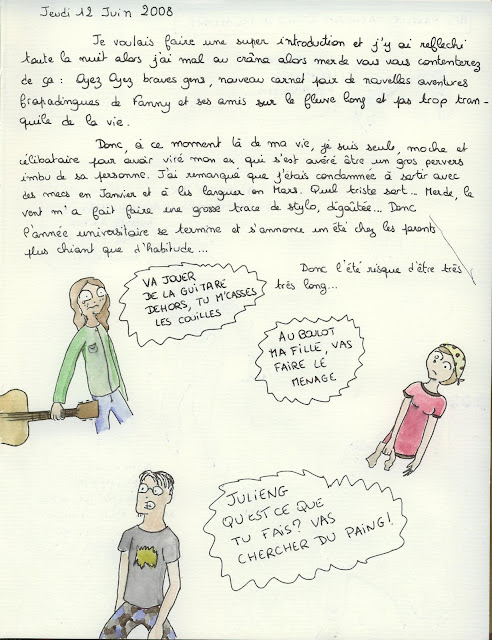 Jeudi 12 Juin 2008
Je voulais faire une super introduction et j'y ai reflechi
toute la nuit alors j'ai mal au crâne alors merde vous vous contenterez
de ça : Oyez Oyez braves gens, nouveau carnet pour de nouvelles aventures
frapadingues de Fanny et ses amis sur le fleuve long et pas trop tran-
quile de la vie.
Donc, à ce moment là de ma vie, je suis seule, moche et
célibataire pour avoir viré mon ex qui s'est avéré être un gros pervers
imbu de sa personne. J'ai remarqué que j'étais condamnée à sortir avec
des mecs en Janvier et à les larguer en Mars. Quel triste sort... Merde, le
vent m'a fait faire une grosse trace de stylo, dégoûtée... Donc
l'année universitaire se termine et s'annonce un été chez les parents
plus chiant que d'habitude...
Donc l'été risque d'être très
très long...
VA JOUER
DE LA GUITARE
DEHORS, TU M'CASSES
LES COUILLES
AU BOULOT
MA FILLE, VAS
FAIRE LE
MENAGE
JULIENG
QU'EST CE QUE
TU FAIS? VAS
CHERCHER DU PAING!